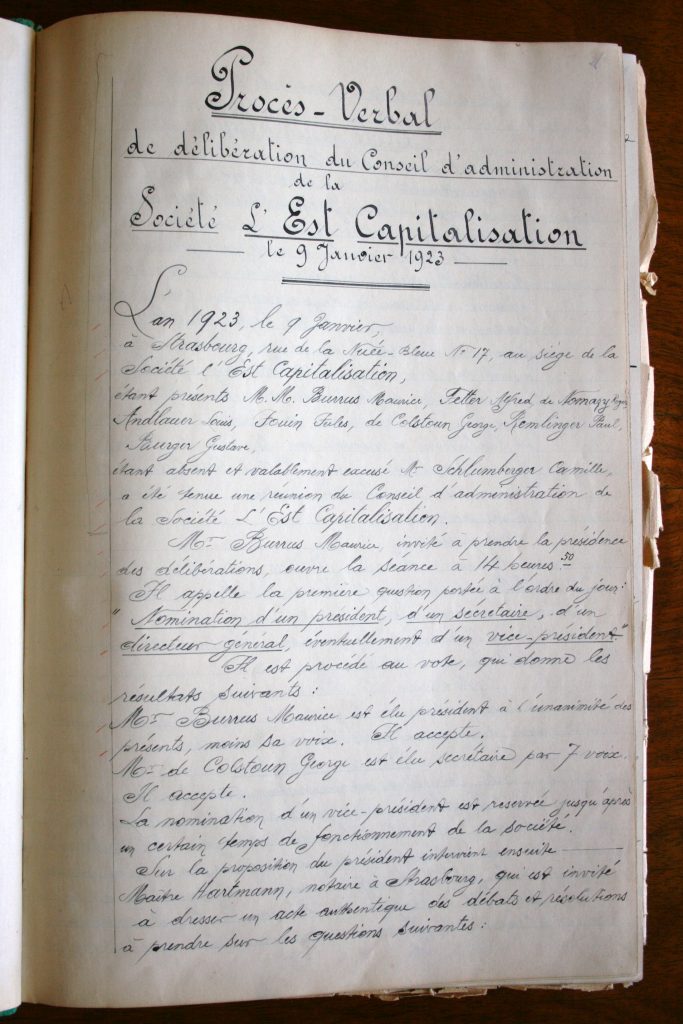 Procès-Verbal
de délibération du Conseil d'administration
de la
Société L'Est Capitalisation
le 9 Janvier 1923
L'an 1923, le 9 Janvier,
à Strasbourg, rue de la Nuée-Bleue No 17, au siège de la
Société l'Est Capitalisation,
étant présents M.M. Burrus Maurice, Fetter Alfred, de Nomazy
Andlauer Louis, Fouin Jules, de Colstoun George, Remlinger Paul,
Burger Gustave,
étant absent et valablement excusé Mr Schlumberger Camille,
a été tenue une réunion du Conseil d'administration de
la Société L'Est Capitalisation.
Mr Burrus Maurice, invité à prendre la présidence
des délibérations, ouvre la séance à 14 heures 50
Il appelle la première question portée à l'ordre du jour:
"Nomination d'un président, d'un secrétaire, d'un
directeur général, éventuellement d'un vice-président."
Il est procédé au vote, qui donne les
résultats suivants:
Mr Burrus Maurice est élu président à l'unanimité des
présents, moins sa voix. Il accepte.
Mr de Colstoun George est élu secrétaire par 7 voix.
Il accepte.
La nomination d'un vice-président est reservée jusqu'après
un certain temps de fonctionnement de la société.
Sur la proposition du président intervient ensuite
Maître Hartmann, notaire à Strasbourg, qui est invité
à dresser un acte authentique des débats et résolutions
à prendre sur les questions suivantes: